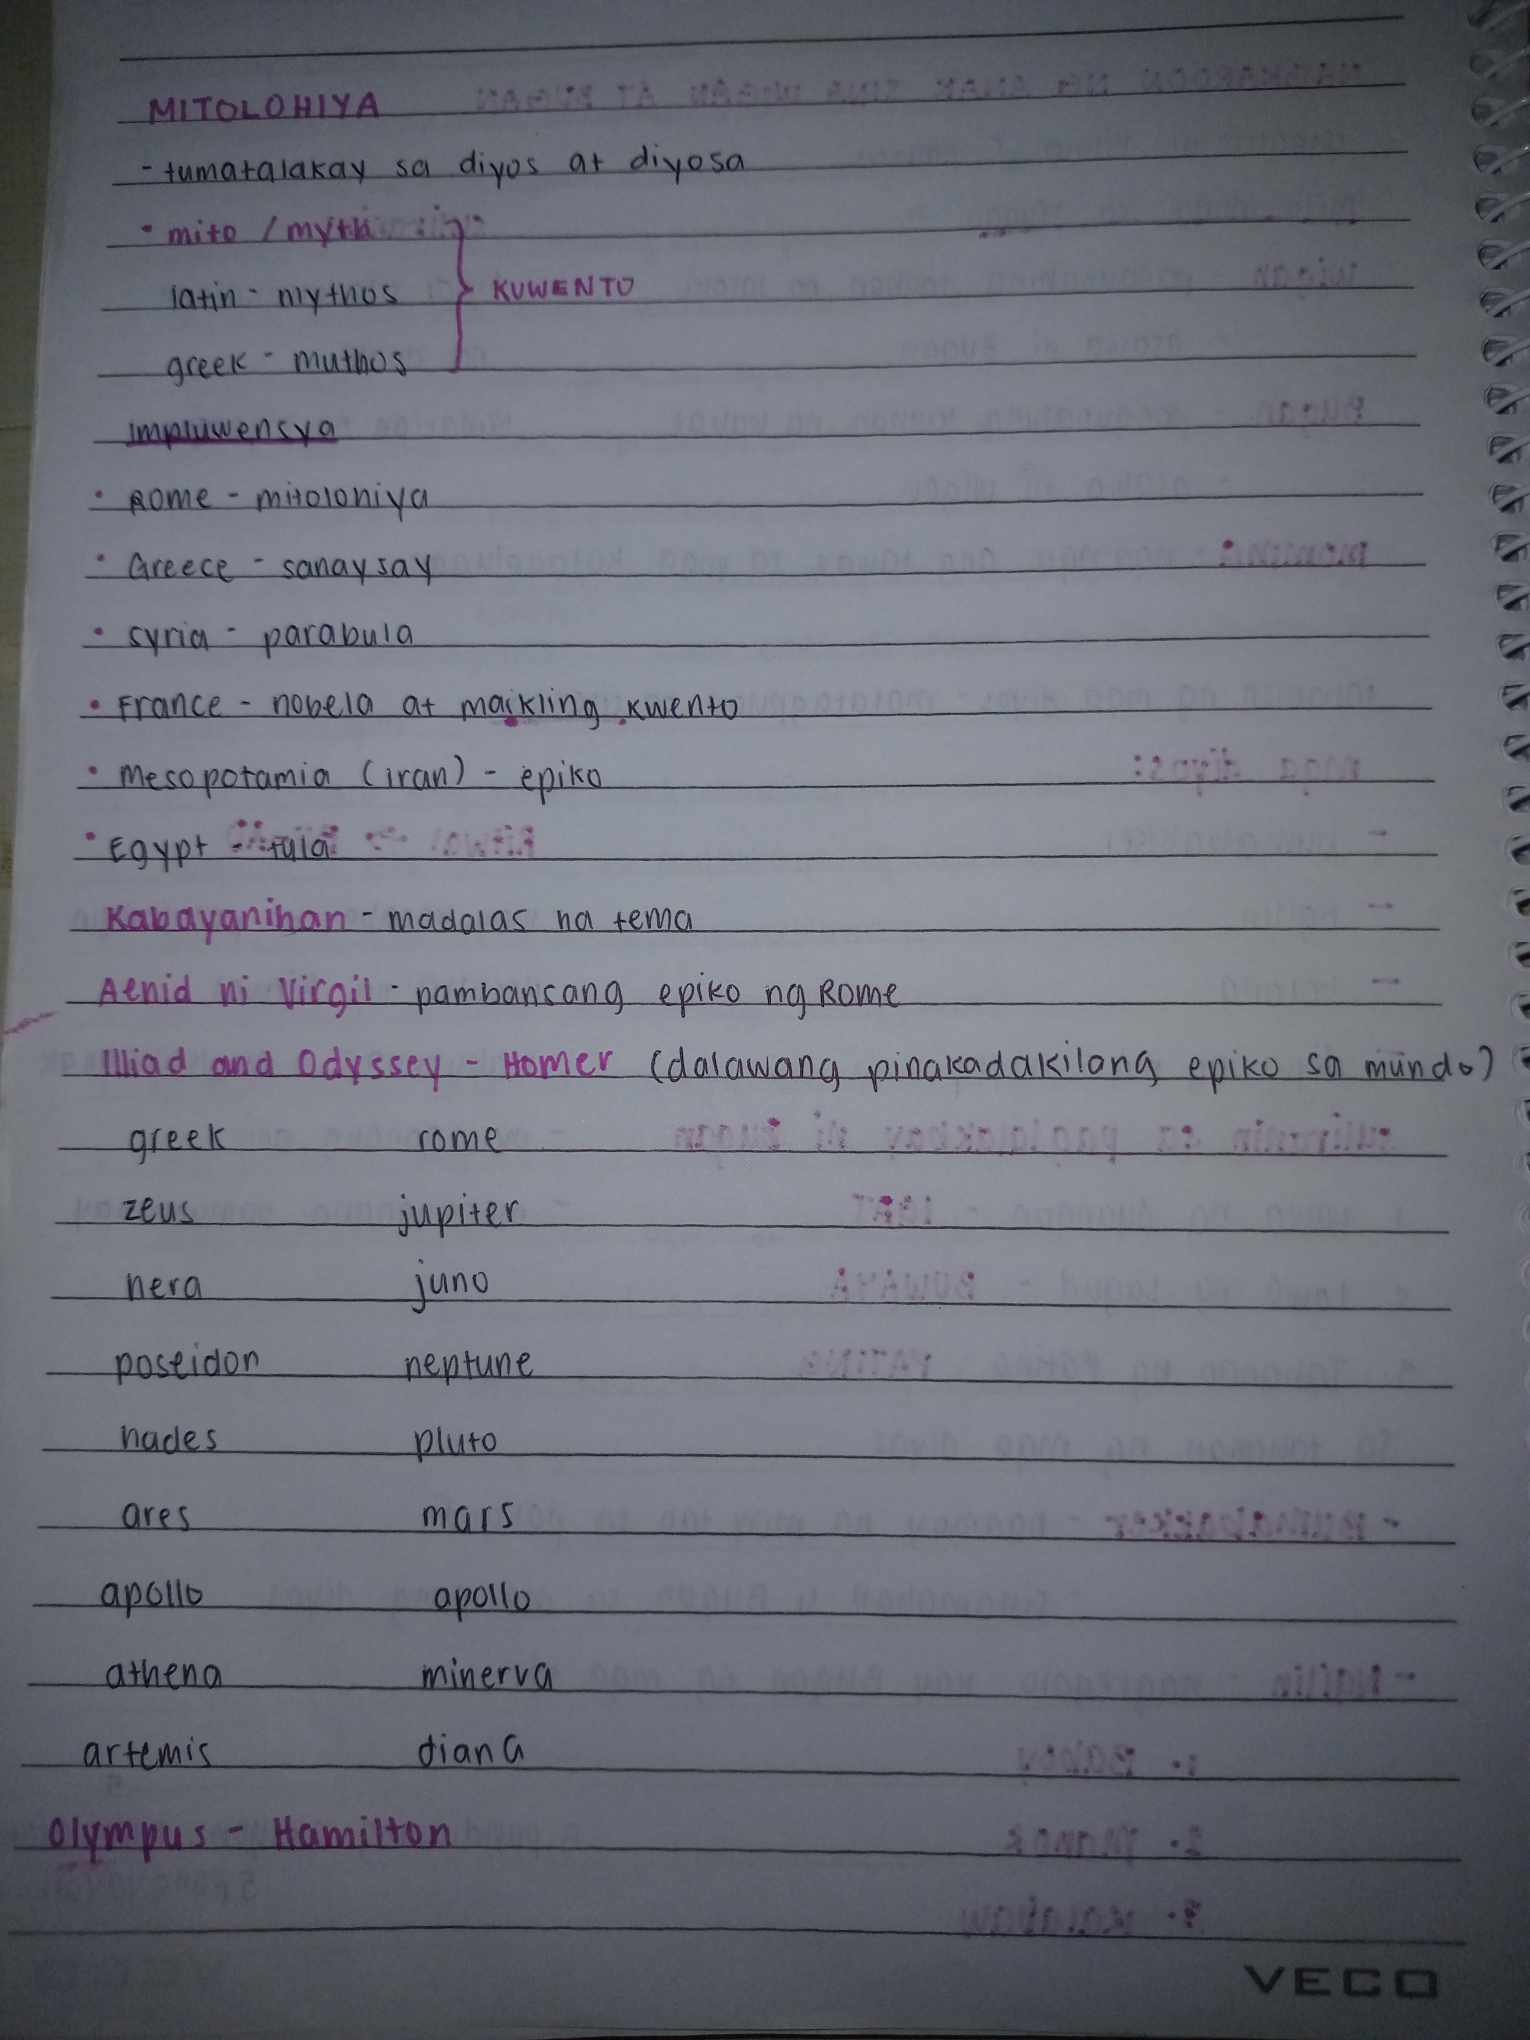 MITOLOHIYA
- tumatalakay sa diyos at diyosa
• mito / myth
latin - mythos } KUWENTO
greek - muthos
impluwensya
• Rome - mitolohiya
• Greece - sanaysay
• syria - parabula
• France - nobela at maikling kwento
• Mesopotamia (iran) - epiko
• Egypt - tula
Kabayanihan - madalas na tema
Aenid ni Virgil - pambansang epiko ng Rome
Illiad and Odyssey - Homer (dalawang pinakadakilang epiko sa mundo)
greek rome
zeus jupiter
hera juno
poseidon neptune
hades pluto
ares mars
apollo apollo
athena minerva
artemis diana
Olympus - Hamilton
VECO